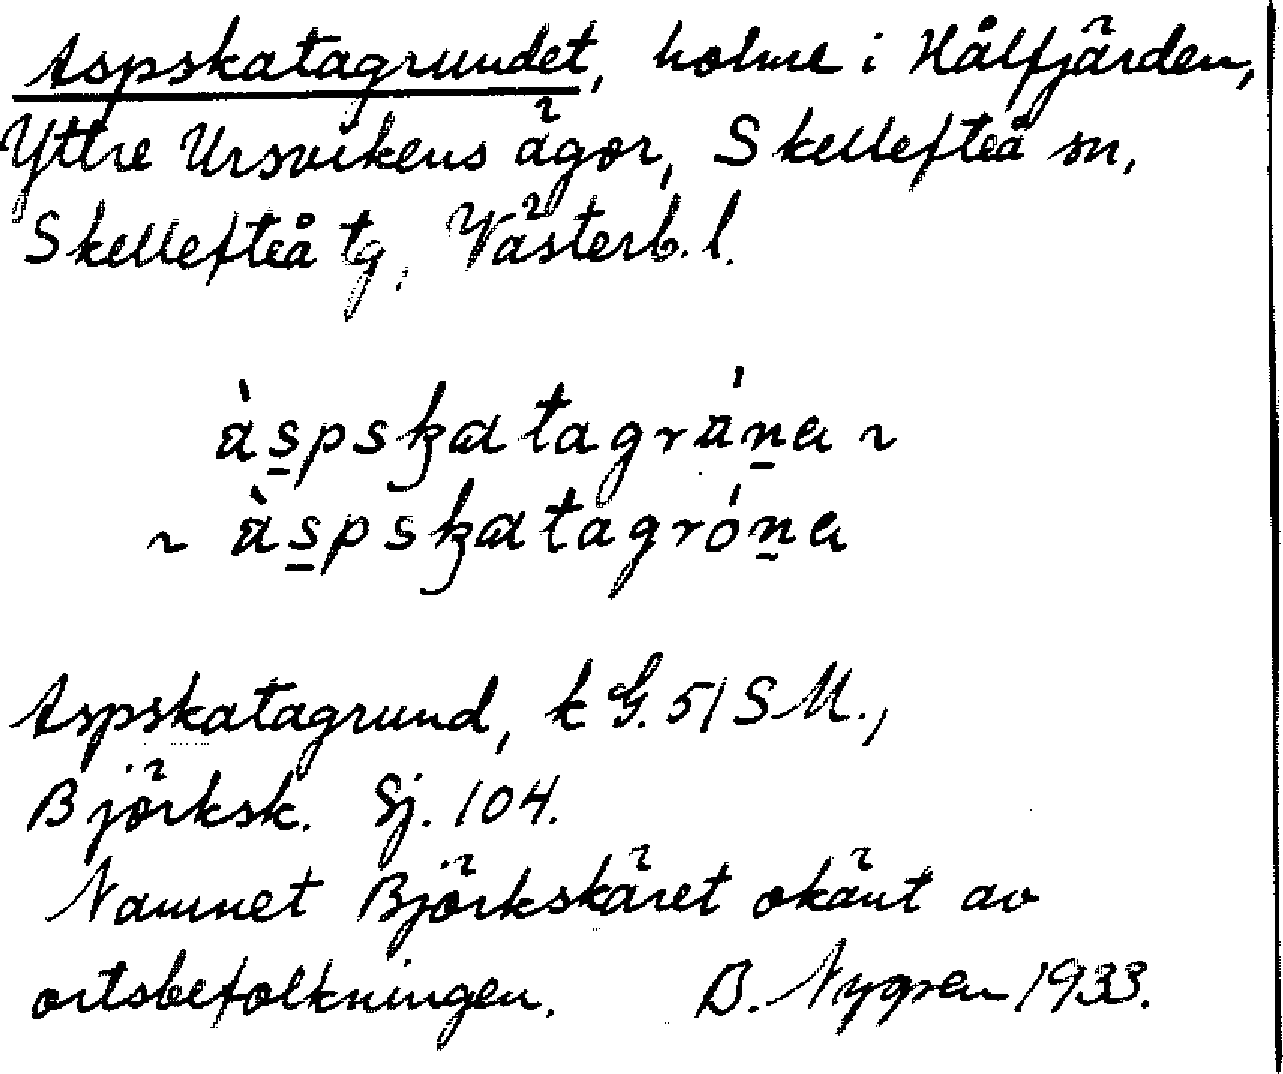 Aspskatagrundet, holme i Hålfjärden,
Yttre Ursvikens ägor, Skellefteå sn,
Skellefteå tg, Västerb. l.
àspskatagrána ~
~ àspskatagróna
Aspskatagrund, k G. 51 S M.,
Björksk. Sj. 104.
Namnet Björkskäret okänt av
ortsbefolkningen. B. Nygren 1933.